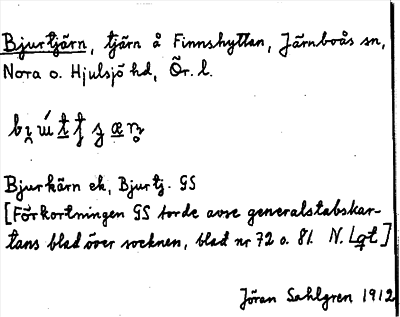 Bjurtjärn, tjärn å Finnshyttan, Järnboås sn,
Nora o. Hjulsjö hd, Ör. l.
Bjurkärn ek, Bjurtj. GS
[Förkortningen GS torde avse generalstabskar-
tans blad över socknen, blad nr 72 o. 81. N. Lgt]
Jöran Sahlgren 1912